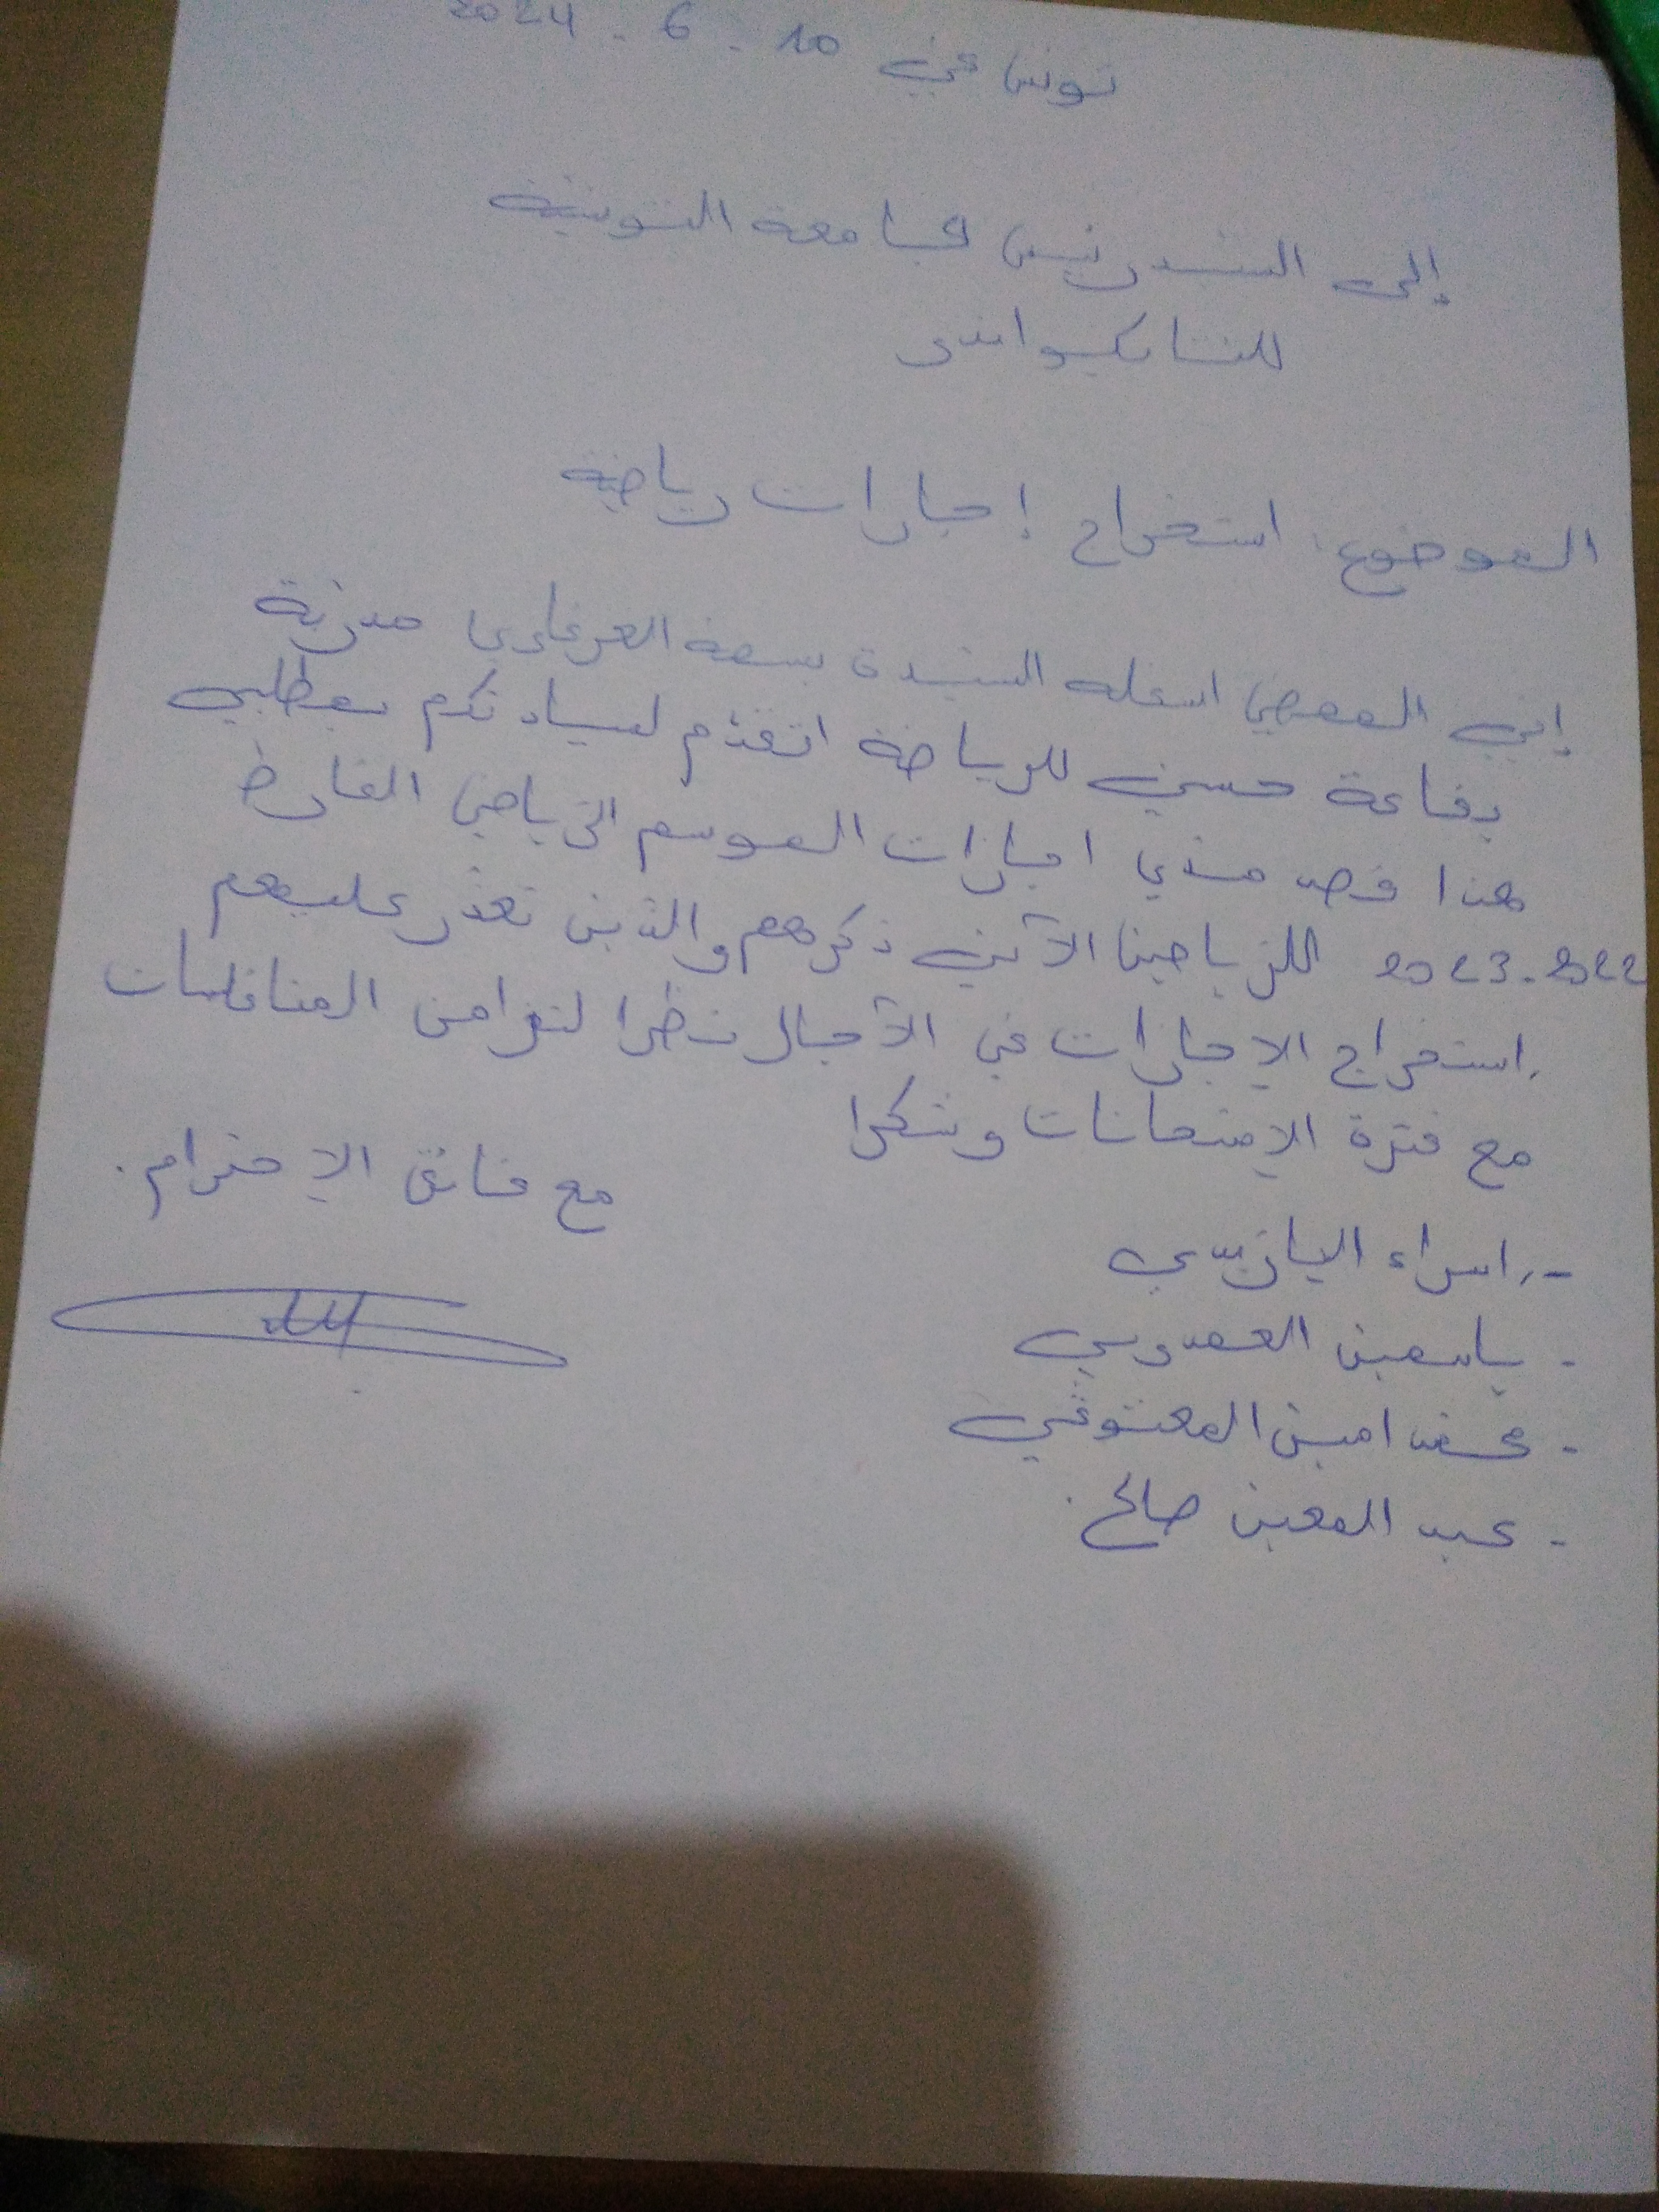 تونس في 10 . 6 . 2024
إلى السيد رئيس الجامعة التونسية
للتايكواندو
الموضوع: استخراج إجازات رياضية
إني الممضي اسفله السيدة بسمة مدربة
بقاعة حسني للرياضة اتقدم لسيادتكم بمطلبي
هذا قصد مدي اجازات الموسم الرياضي الفارط
2022-2023 للرياضين الآتي ذكرهم والذين تعذر عليهم
استخراج الإجازات في الآجال نظرا لتزامن المنافسات
مع فترة الإمتحانات وشكرا
مع فائق الإحترام.
- اسراء
- ياسمين
- محمد امين
- عبد المعين صالح.